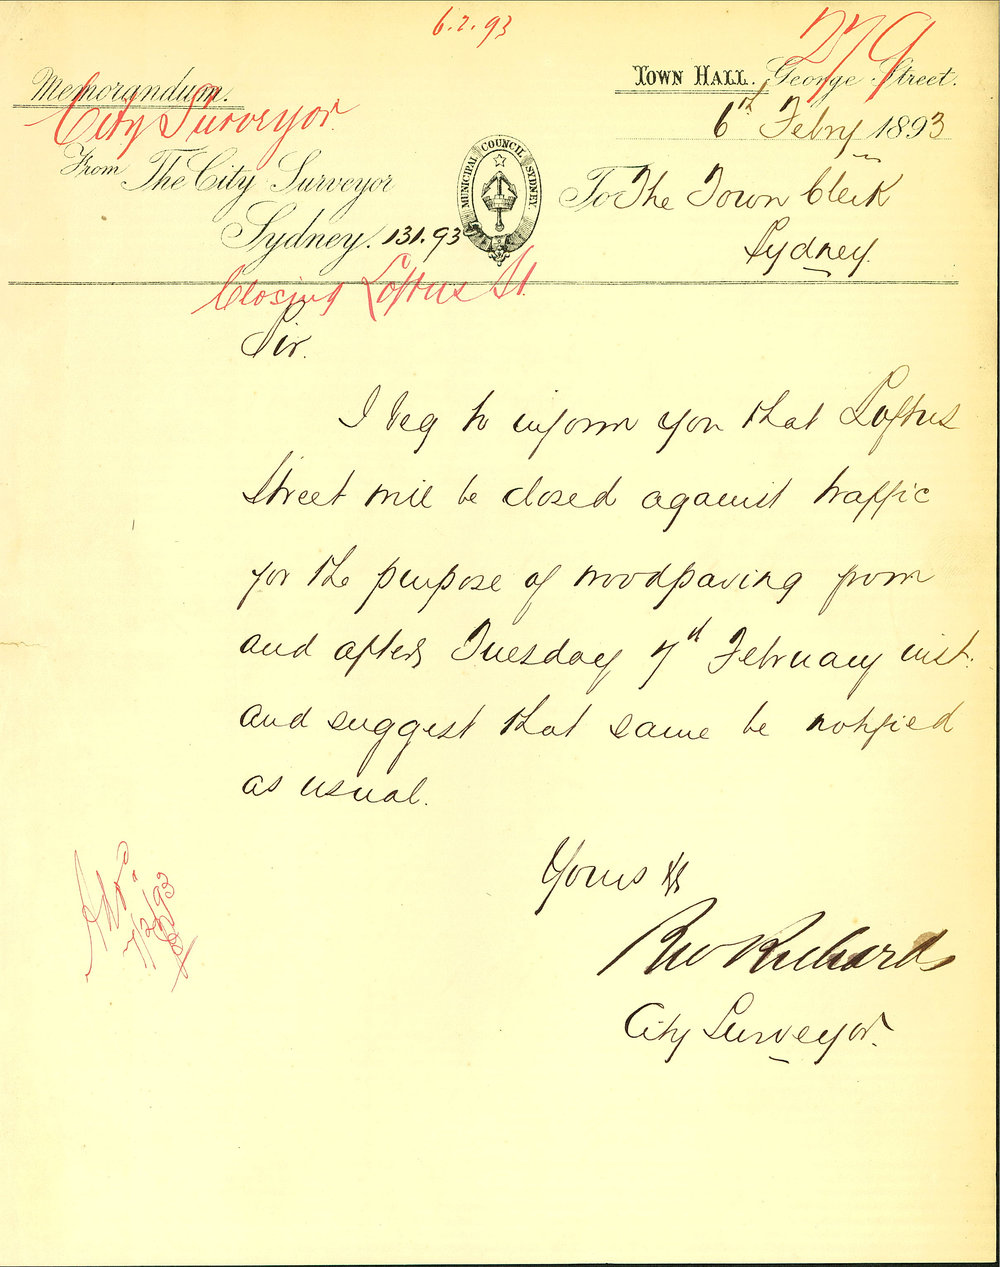 6.2.93
279
Memorandum. TOWN HALL. George Street.
City Surveyor
6th Febry 1893
From The City Surveyor
MUNICIPAL COUNCIL SYDNEY
To The Town Clerk
Sydney. 131.93
Sydney.
Closing Loftus St.
Sir.
I beg to inform you that Loftus
Street will be closed against traffic
for the purpose of woodpaving from
and after Tuesday 7th February inst.
and suggest that same be notified
as usual.
Yours &c
RW Richards
City Surveyor.
7/2/93